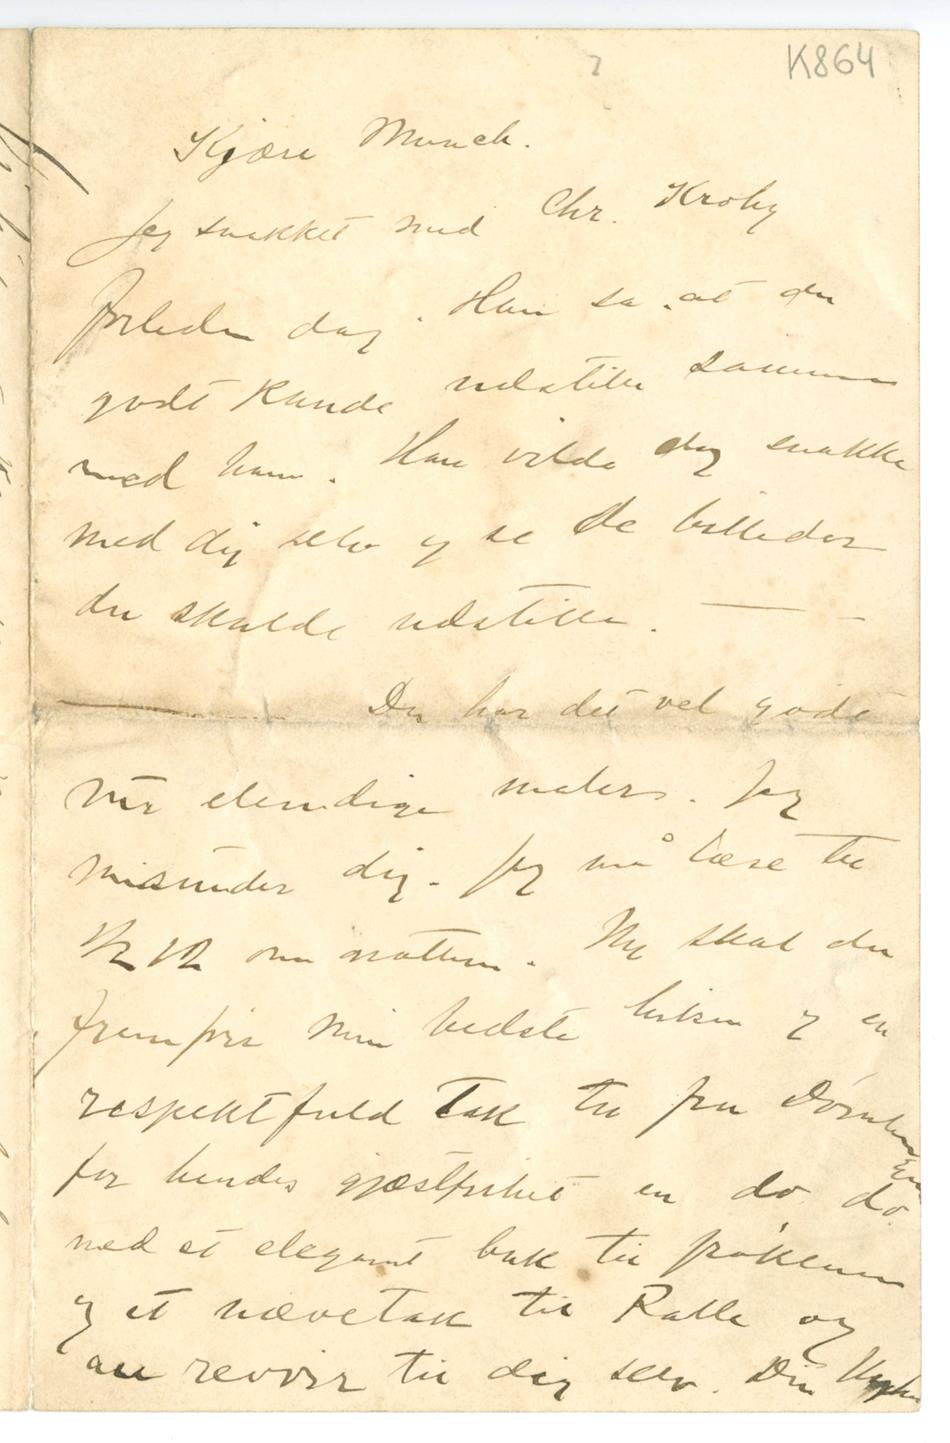 K864
Kjære Munch.
Jeg snakket med Chr. Krohg
forleden dag. Han sa at du
godt kunde udstille sammen
med ham. Han vilde dog snakke
med dig selv og se de billeder
du skulde udstille. —
— Du har det vel godt
elendige maler. Jeg
misunder dig. Jeg må læse til
½ 12 om natten. Nu skal du
fremføre min bedste hilsen og en
respektfuld tak til fru
for hendes gjæstfrihet en do do
med et elegant buk til frøkenen
og et nævetak til Kalle og
au revoir til dig selv. Din